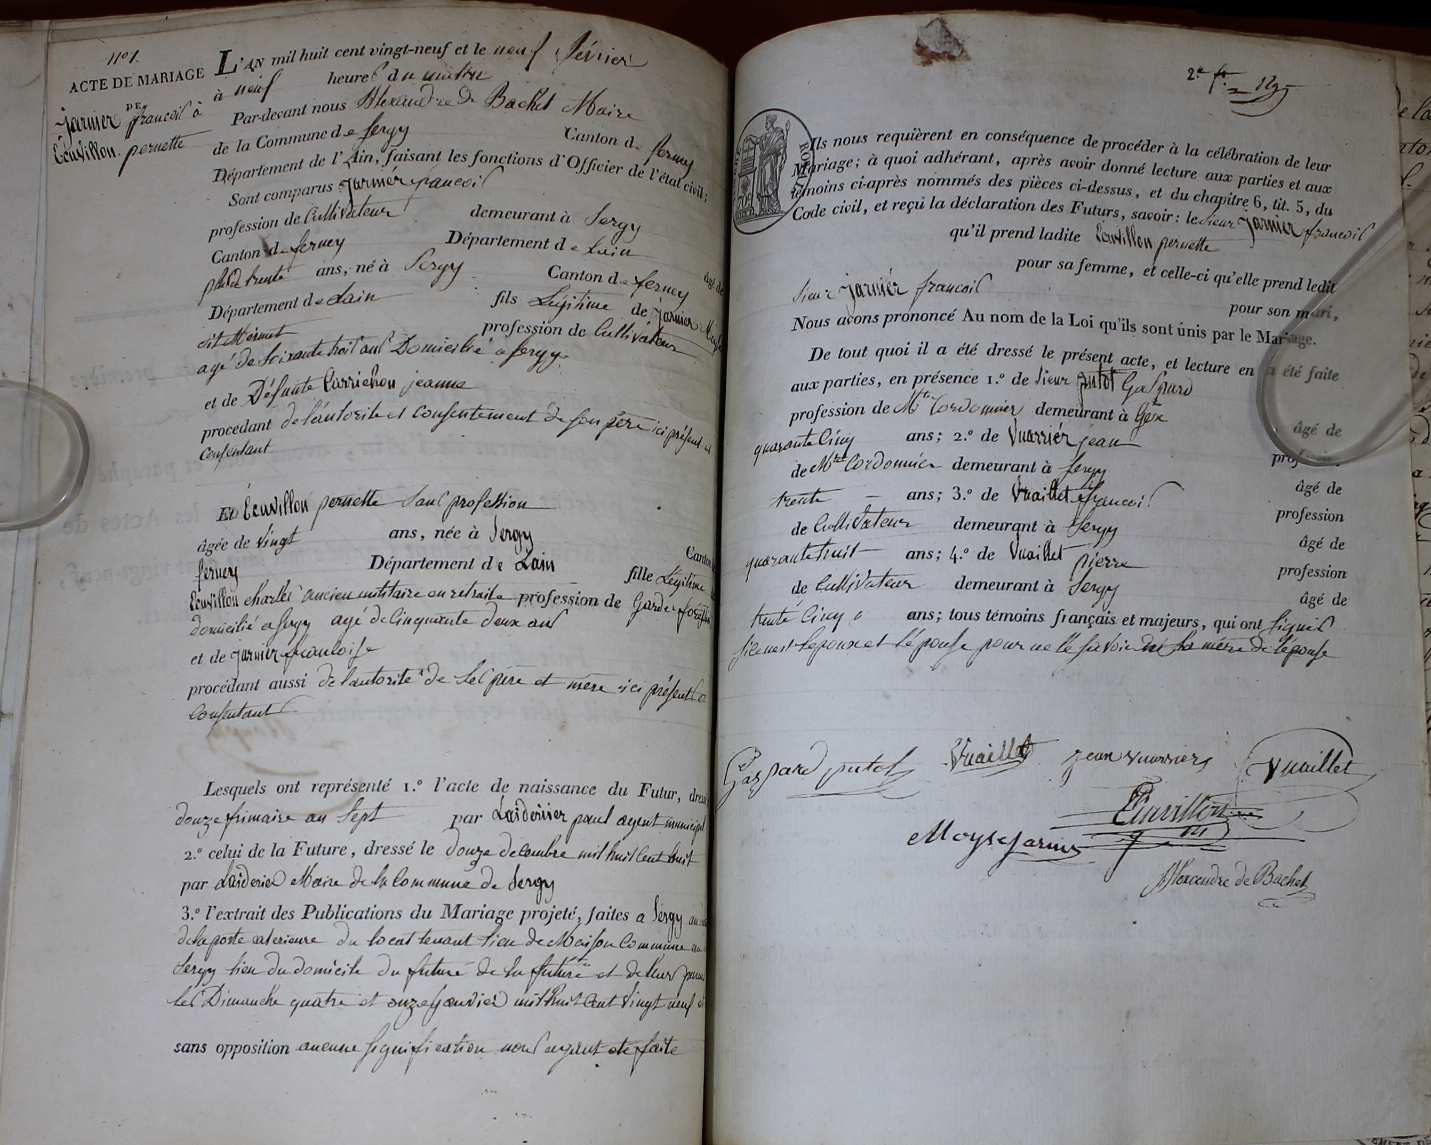 N.º 1.
ACTE DE MARIAGE
DE
Jarnier francois à
Ecuvillon pernette
L'AN mil huit cent vingt-neuf et le neuf février
à neuf heures du matin
Par-devant nous Alexandre de Bachet Maire
de la Commune de Sergy Canton de ferney
Département de l'Ain, faisant les fonctions d'Officier de l'état civil;
Sont comparus Jarnier francois
profession de Cultivateur demeurant à Sergy
Canton de ferney Département de Lain âgé de
trente ans, né à Sergy Canton de ferney
Département de Lain fils Légitime de Jarnier
dit Mermet profession de Cultivateur
agé de Soixante trois ans Domicilié a Sergy
et de Défunte Carrichon jeanne
procédant de lautorité et consentement de son père ici présent et
consentant
Et Ecuvillon pernette Sans profession
âgée de vingt ans, née à Sergy Canton
ferney Département de Lain fille Légitime
Ecuvillon charles ancien militaire en retraite profession de Garde forestier
domicilié a Sergy agé de Cinquante deux ans
et de Jarnier francoise
procédant aussi de lautorité de Ses père et mère ici présents
Consentant
Lesquels ont représenté 1.º l'acte de naissance du Futur, dressé
douze frimaire an Sept par Laidevier paul agent municipal
2.º celui de la Future, dressé le douze decembre mil huit Cent huit
par Laidevier Maire de la Commune de Sergy
3.º l'extrait des Publications du Mariage projeté, faites a Sergy
de la porte exterieure du local tenant lieu de Maison Commune
Sergy lieu du domicile du futur de la future et de leurs
les Dimanche quatre et onze Janvier mil huit Cent vingt neuf
sans opposition aucune Signification nous ayant été faite
2.e f.t
Ils nous requièrent en conséquence de procéder à la célébration de leur
Mariage; à quoi adhérant, après avoir donné lecture aux parties et aux
témoins ci-après nommés des pièces ci-dessus, et du chapitre 6, tit. 5, du
Code civil, et reçu la déclaration des Futurs, savoir: le Sieur Jarnier francois
qu'il prend ladite Ecuvillon pernette
pour sa femme, et celle-ci qu'elle prend ledit
Sieur Jarnier francois
pour son mari,
Nous avons prononcé Au nom de la Loi qu'ils sont unis par le Mariage.
De tout quoi il a été dressé le présent acte, et lecture en a été faite
aux parties, en présence 1.º de Sieur putot Gaspard
profession de M.tre Cordonnier demeurant à Gex âgé de
quarante Cinq ans; 2.º de Vuarrier jean profession
de M.tre Cordonnier demeurant à Sergy âgé de
trente ans; 3.º de Vuaillet francois profession
de Cultivateur demeurant à Sergy âgé de
quarante huit ans; 4.º de Vuaillet pierre profession
de Cultivateur demeurant à Sergy âgé de
trente Cinq ans; tous témoins français et majeurs, qui ont Signés
Si ce n'est lepoux et lépouse pour ne le Savoir la mère de lépouse
Gaspard putot Vuaillet jean vuarrier Vuaillet
Ecuvillon
Moyse Jarnier
Alexandre de Bachet